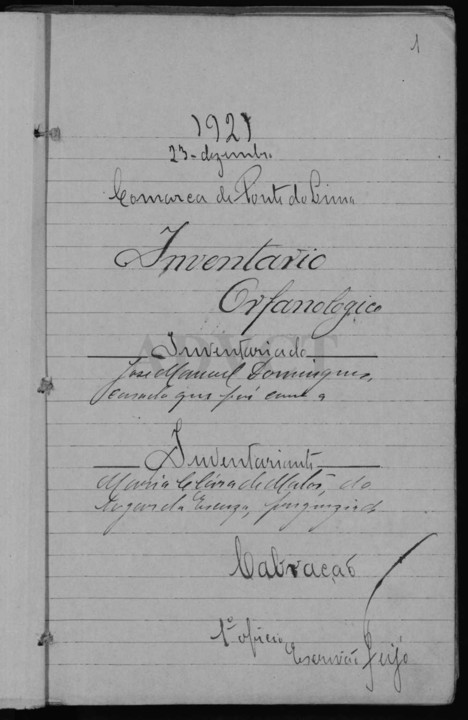 1
1921
23-dezembro
Comarca de Ponte do Lima
Inventario
Orfanologico
Inventariado
José Manuel Domingues,
casado que foi com a
Inventariante
Maria Clara de Matos, do
logar da Escusa, freguezia de
Cabração
1º oficio
Escrivão Feijó